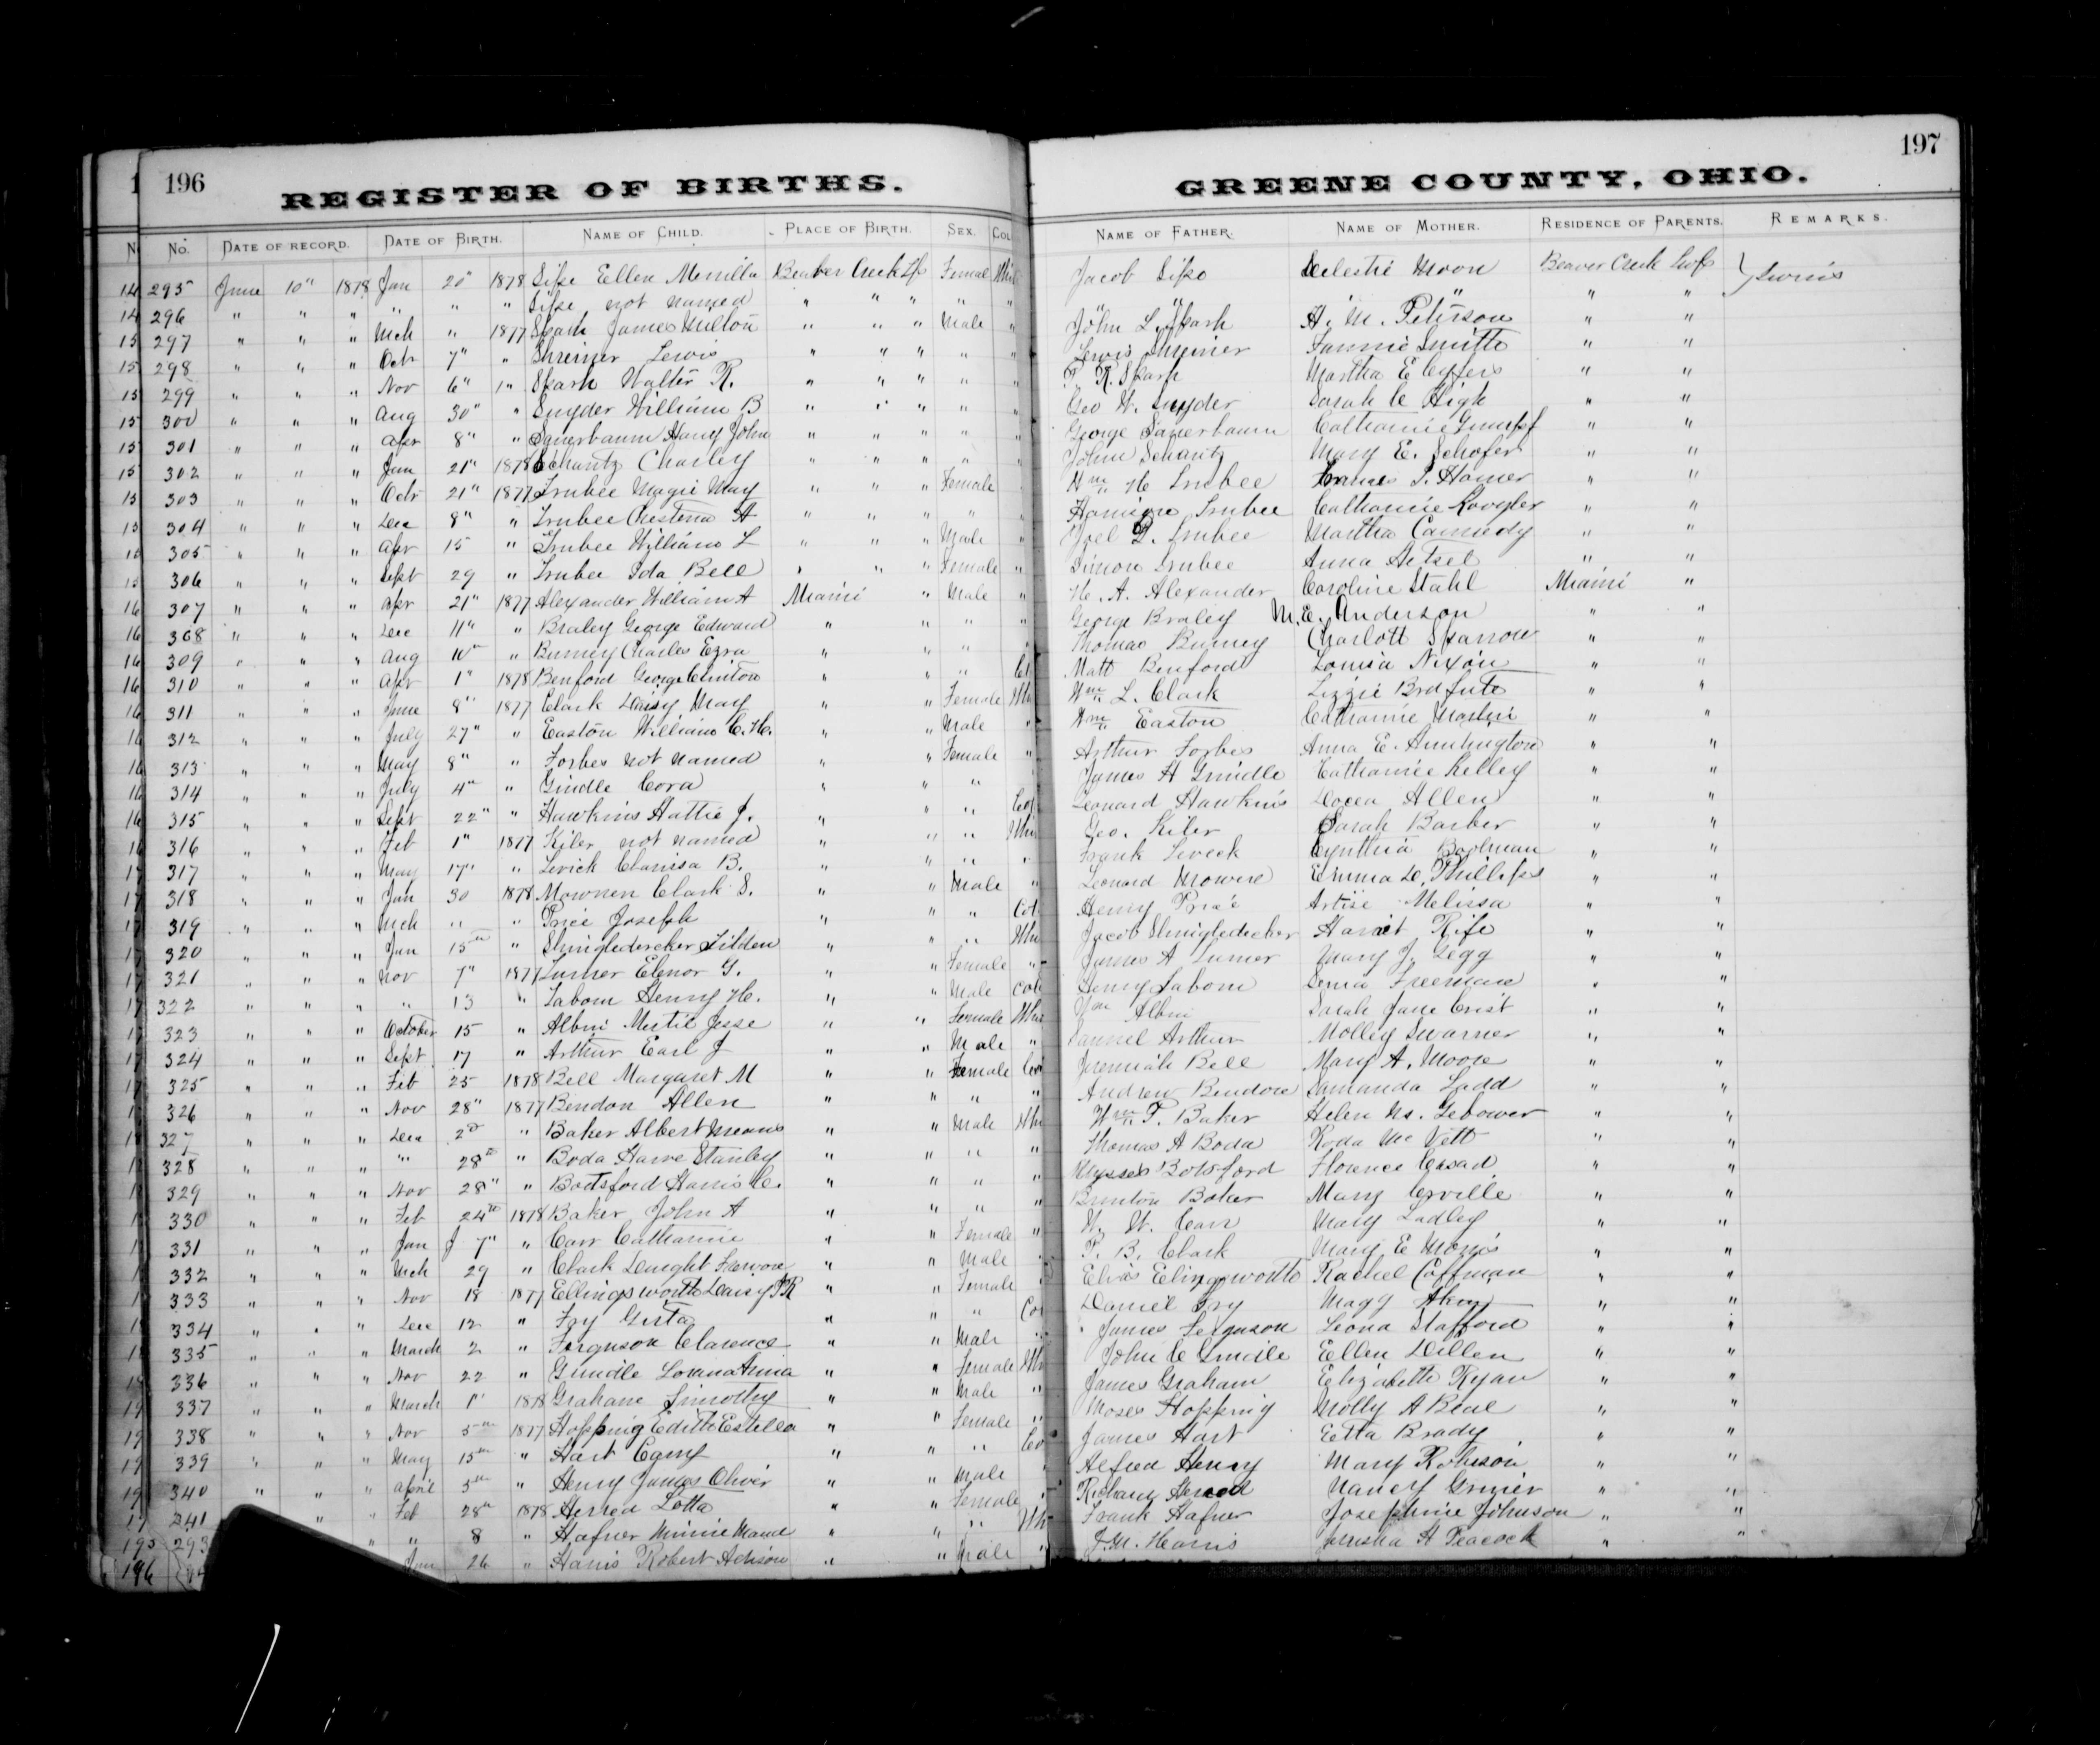 196
REGISTER OF BIRTHS.
197
GREENE COUNTY, OHIO.
No. DATE OF RECORD. DATE OF BIRTH. NAME OF CHILD. PLACE OF BIRTH. SEX. COL
NAME OF FATHER. NAME OF MOTHER. RESIDENCE OF PARENTS. REMARKS.
295 June 10" 1878 Jan 20" 1878 Sipe Ellen Merrilla Beaver Creek Tp Female Whi Jacob Sipe Moon Beaver Creek Twp
296 " " " " " " Sipe not named " " " " " " " " " Twins
297 " " " Mch " 1877 Spark James Milton " " " Male " John L. Spark H. M. Peterson " "
298 " " " Oct 7" " Shreiner Lewis " " " " " Lewis Shreiner Fannie Smith " "
299 " " " Nov 6" " Spark Walter R. " " " " " R. Spark Martha E " "
300 " " " Aug 30" " Snyder William B " " " " Geo W. Snyder Sarah C High " "
301 " " " Apr 8" " Sauerbaum Harry John " " " " " George Sauerbaum Catharine " "
302 " " " Jan 21" 1878 Schantz Charley " " " " " John Schantz Mary E. Schofer " "
303 " " " Oct 21" 1877 Trubee Magie May " " " Female Wm H Trubee Frances P. Hamer " "
304 " " " Dec 8" " Trubee Chestena A " " " " " Harrison Trubee Catharine " "
305 " " " Apr 15 " Trubee William L " " " Male " Joel D. Trubee Martha Cannedy " "
306 " " " Sept 29 " Trubee Ida Bell " " " Female " Simon Trubee Anna " "
307 " " " Apr 21" 1877 Alexander William A Miami " Male " H. A. Alexander Caroline Stahl Miami "
308 " " " Dec 11" " Braley George Edward " " " " George Braley M. E. Anderson " "
309 " " " Aug 10" " Burney Charles Ezra " " " Thomas Burney Charlott Sparrow " "
310 " " " Apr 1" 1878 Benford George Clinton " " " Matt Benford Louisa Nixon " "
311 " " " June 8" 1877 Clark Daisy May " " Female Whi Wm L. Clark Lizzie Bradfute " "
312 " " " July 27" " Easton William C. H. " " Male " Wm Easton Catharine Martin " "
313 " " " May 8" " Forbes not named " " Female " Arthur Forbes Anna E. Huntington " "
314 " " " July 4" " Grindle Cora " " " James H Grindle Catharine Kelley " "
315 " " " Sept 22" " Hawkins Hattie J. " " " Col Leonard Hawkins Allen " "
316 " " " Feb 1" 1877 Kiler not named " " " Whi Geo. Kiler Sarah Barber " "
317 " " " May 17" " Levick Clarisa B. " " " " Frank Leveck Cynthia Boolman " "
318 " " " Jan 30 1878 Mownen Clark S. " " Male " Leonard Mowen Emma D. Phillips " "
319 " " " Mch " " Price Joseph " " " Col Henry Price Artise Melissa " "
320 " " " Jan 15th " Shingledercker Tilden " " " Whi Jacob Shingledecker Harriet Rife " "
321 " " " Nov 7" 1877 Turner Elenor G. " " Female " James A Turner Mary J. Legg " "
322 " " " " 13 " Taborn Henry H. " " Male Col Henry Taborn Freeman " "
323 " " " October 15 " Albin Mertie Jesse " " Female Whi Wm Albin Sarah Jane Crist " "
324 " " " Sept 17 " Arthur Earl J " " Male " Samuel Arthur Molley Swarner " "
325 " " " Feb 25 1878 Bell Margaret M " " Female Col Jeremiah Bell Mary A. Moore " "
326 " " " Nov 28" 1877 Bendon Allen " " " " Andrew Bendore Samanda Ladd " "
327 " " " Dec 2d " Baker Albert Means " " Male Whi Wm P. Baker Helen M. Gebower " "
328 " " " " 28th " Boda Harve Stanley " " " " Thomas A Boda Roda Mc Vett " "
329 " " " Nov 28" " Bootsford Harris C. " " " " Ulysses Botsford Florence Casad " "
330 " " " Feb 24th 1878 Baker John A " " " " Brinton Baker Mary Orville " "
331 " " " Jan 7" " Carr Catharine " " Female " W. W. Carr Mary Ladley " "
332 " " " Mch 29 " Clark Dwight " " Male " P. B. Clark Mary E Morris " "
333 " " " Nov 18 1877 Ellingsworth Daisy " " Female " Elias Elingsworth Rachel Coffman " "
334 " " " Dec 12 " Foy Gusta " " " Col Daniel Foy Magg " "
335 " " " March 2 " Ferguson Clarence " " Male " James Ferguson Leona Stafford " "
336 " " " Nov 22 " Grindle Lorana Anna " " Female Whi John C Grindle Ellen Dillen " "
337 " " " March 1" 1878 Graham Timothy " " Male " James Graham Elizabeth Ryan " "
338 " " " Nov 5th 1877 Hopping Edith Estella " " Female " Moses Hopping Molly A Beal " "
339 " " " May 15th " Hart " " " Co James Hart Etta Brady " "
340 " " " April 5th " Henry James Oliver " " Male " Alfred Henry Mary Robison " "
341 " " Feb 28th 1878 Herred Lotta " " Female " Richard Herrod Nancy Grinier " "
293 " " 8 " Hafner Minnie Maud " " " Wh Frank Hafner Josephine Johnson " "
196 Jan 26 " Harris Robert Adison " " Male " J. M. Harris A Peacock " "